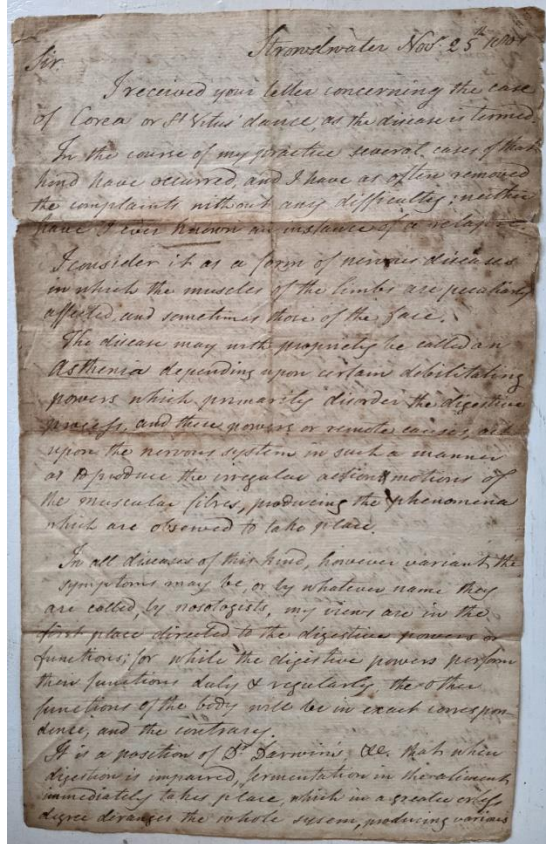 Strowdwater Nov. 25th
Sir.
I received your letter concerning the case
of Corea or St Vitus' dance, as the disease is termed.
In the course of my practice several cases of that
kind have occurred, and I have as often removed
the complaints without any difficulty; neither
have I ever known an instance of a relapse.
I consider it as a form of nervous diseases
in which the muscles of the limbs are peculiarly
affected, and sometimes those of the face.
The disease may with propriety be called an
Asthenia depending upon certain debilitating
powers which primarily disorder the digestive
process, and these powers or remote causes, act
upon the nervous system in such a manner
as to produce the irregular action & motions of
the muscular fibres, producing the phenomena
which are observed to take place.
In all diseases of this kind, however variant the
symptoms may be, or by whatever name they
are called, by nosologists, my views are in the
first place directed to the digestive powers or
functions; for while the digestive powers perform
their functions duly & regularly, the other
functions of the body will be in exact correspon-
dence, and the contrary.
It is a position of Dr Darwin's, &c. that when
digestion is impaired, fermentation in the aliment
immediately takes place, which in a greater or less
degree deranges the whole sysem, producing various